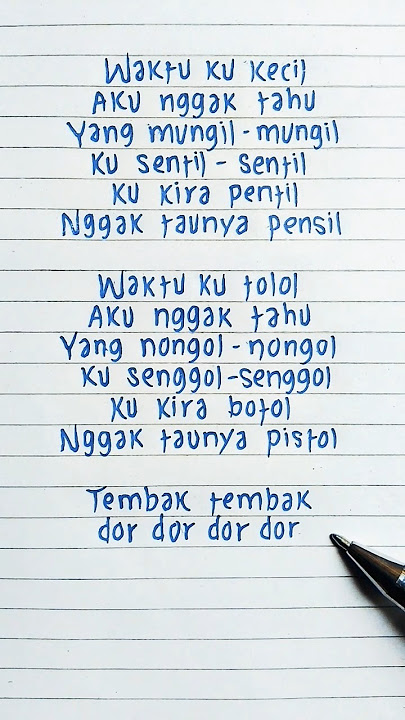 Waktu ku kecil
Aku nggak tahu
Yang mungil-mungil
Ku sentil-sentil
Ku kira pentil
Nggak taunya pensil
Waktu ku tolol
Aku nggak tahu
Yang nongol-nongol
Ku senggol-senggol
Ku kira botol
Nggak taunya pistol
Tembak tembak
dor dor dor dor